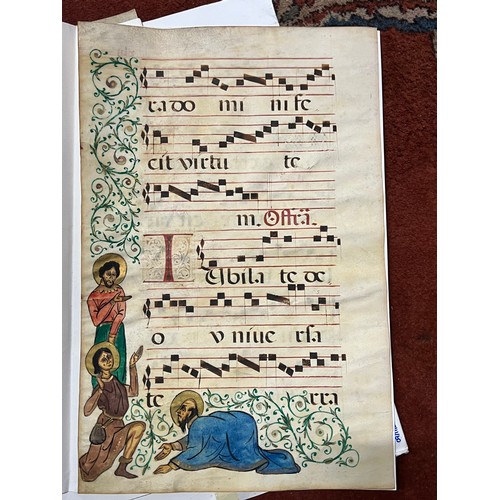 ra do mi ni fe
cit virtu te
m. Offrã.
Iubila te de
o v niue rsa
te rra